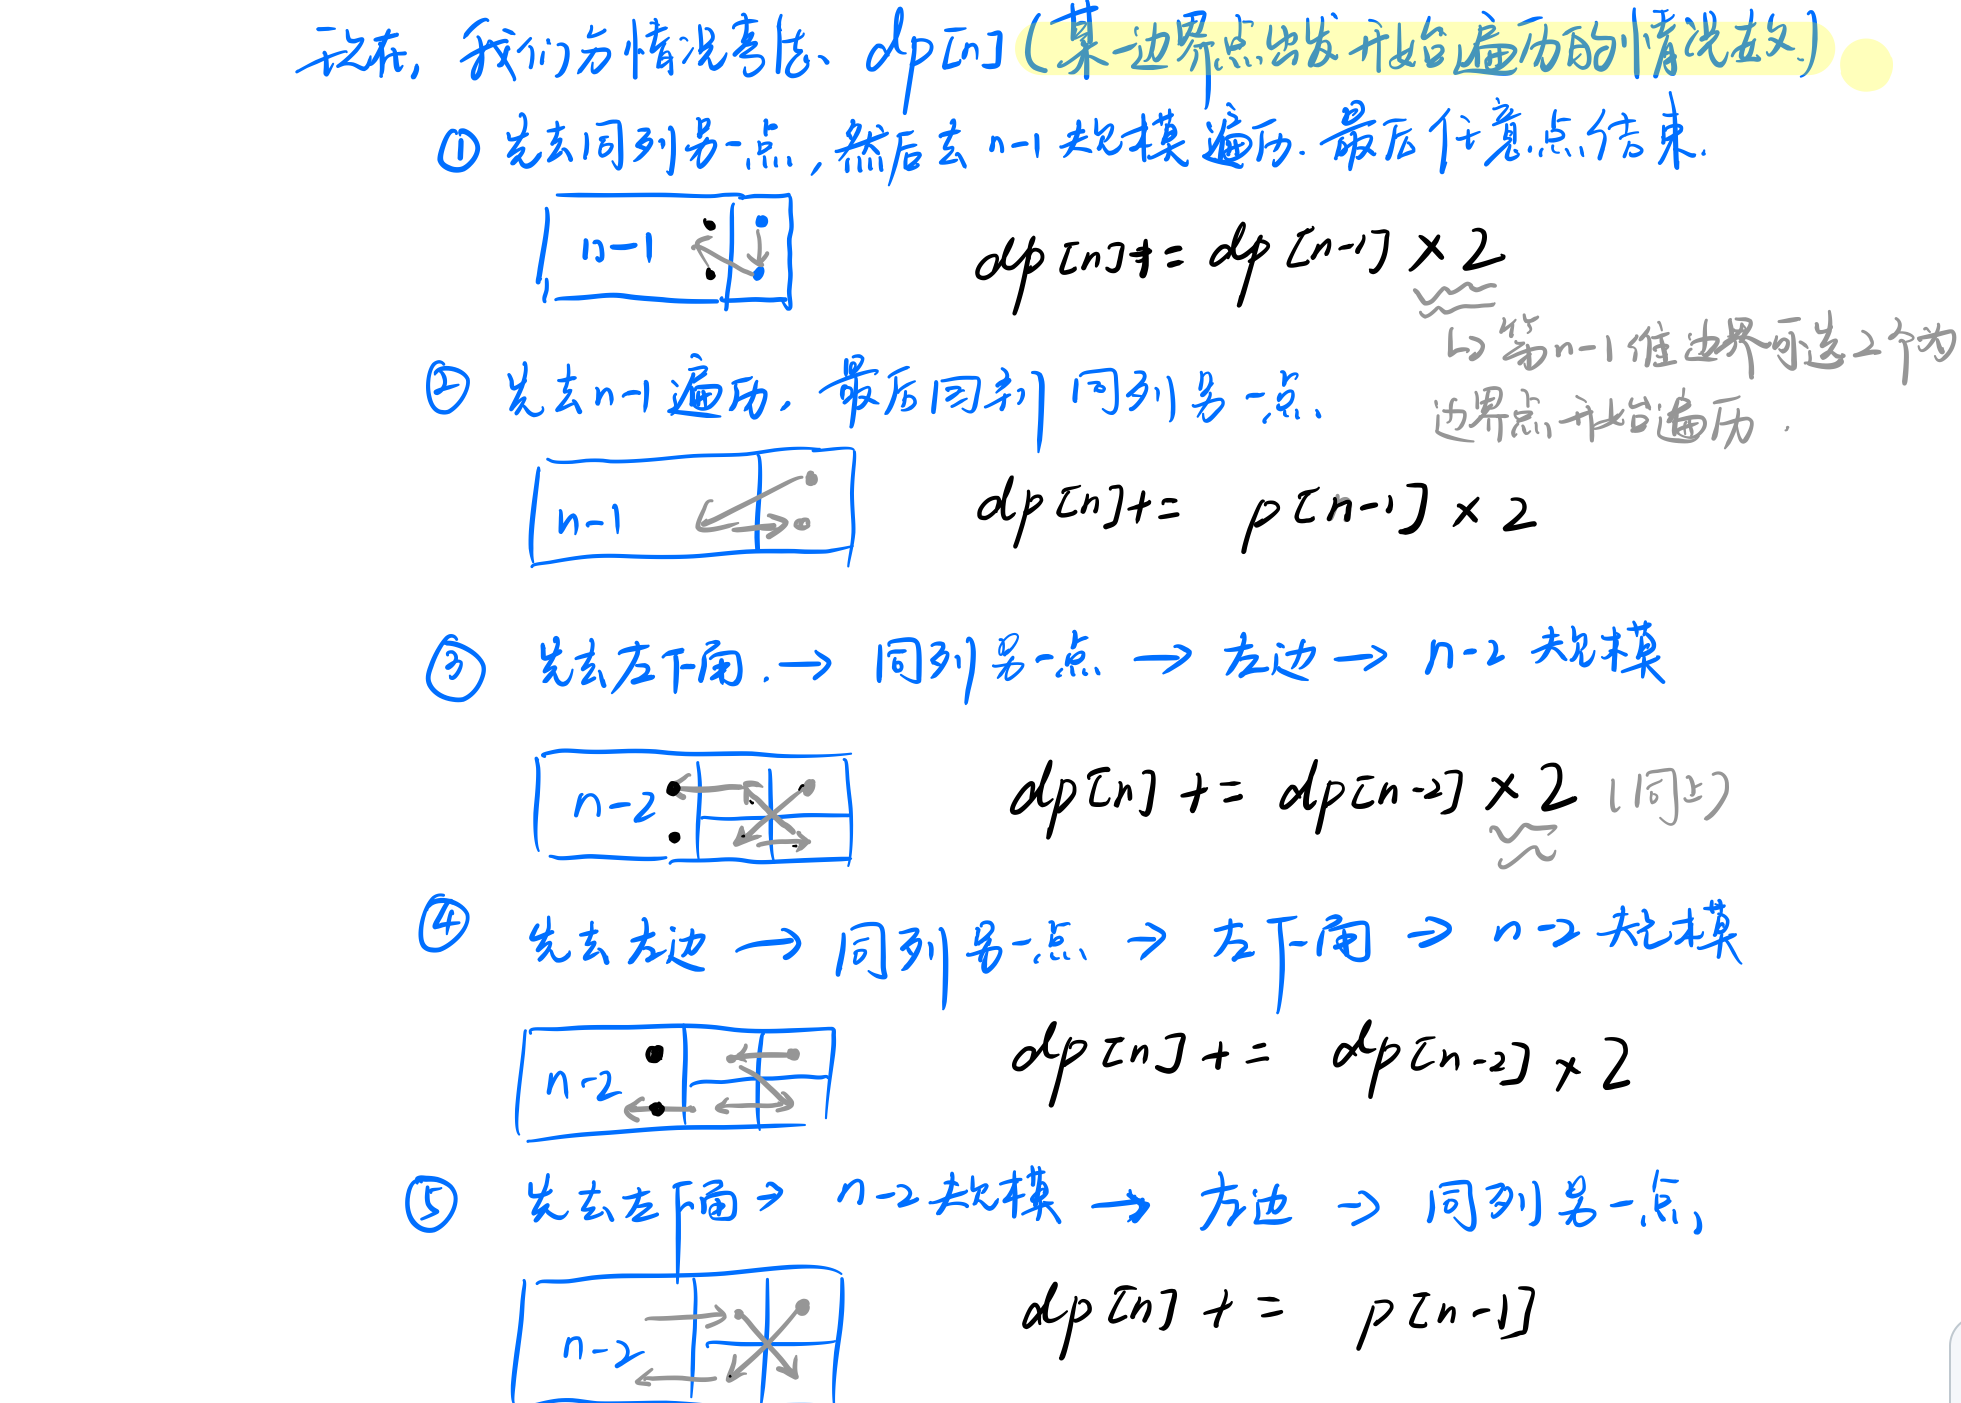 现在, 我们分情况考虑、dp[n] (某一边界点出发开始遍历的情况数)
① 先去同列另一点, 然后去 n-1 规模遍历. 最后任意点结束.
n-1
dp[n] += dp[n-1] × 2
↳ 第n-1维边界可选2个为
边界点开始遍历.
② 先去n-1遍历, 最后回到同列另一点、
n-1
dp[n] += p[n-1] × 2
③ 先去左下角. → 同列另一点 → 左边 → n-2 规模
n-2
dp[n] += dp[n-2] × 2 (同上)
④ 先去左边 → 同列另一点 → 左下角 → n-2 规模
n-2
dp[n] += dp[n-2] × 2
⑤ 先去左下角 → n-2 规模 → 左边 → 同列另一点、
n-2
dp[n] += p[n-1]